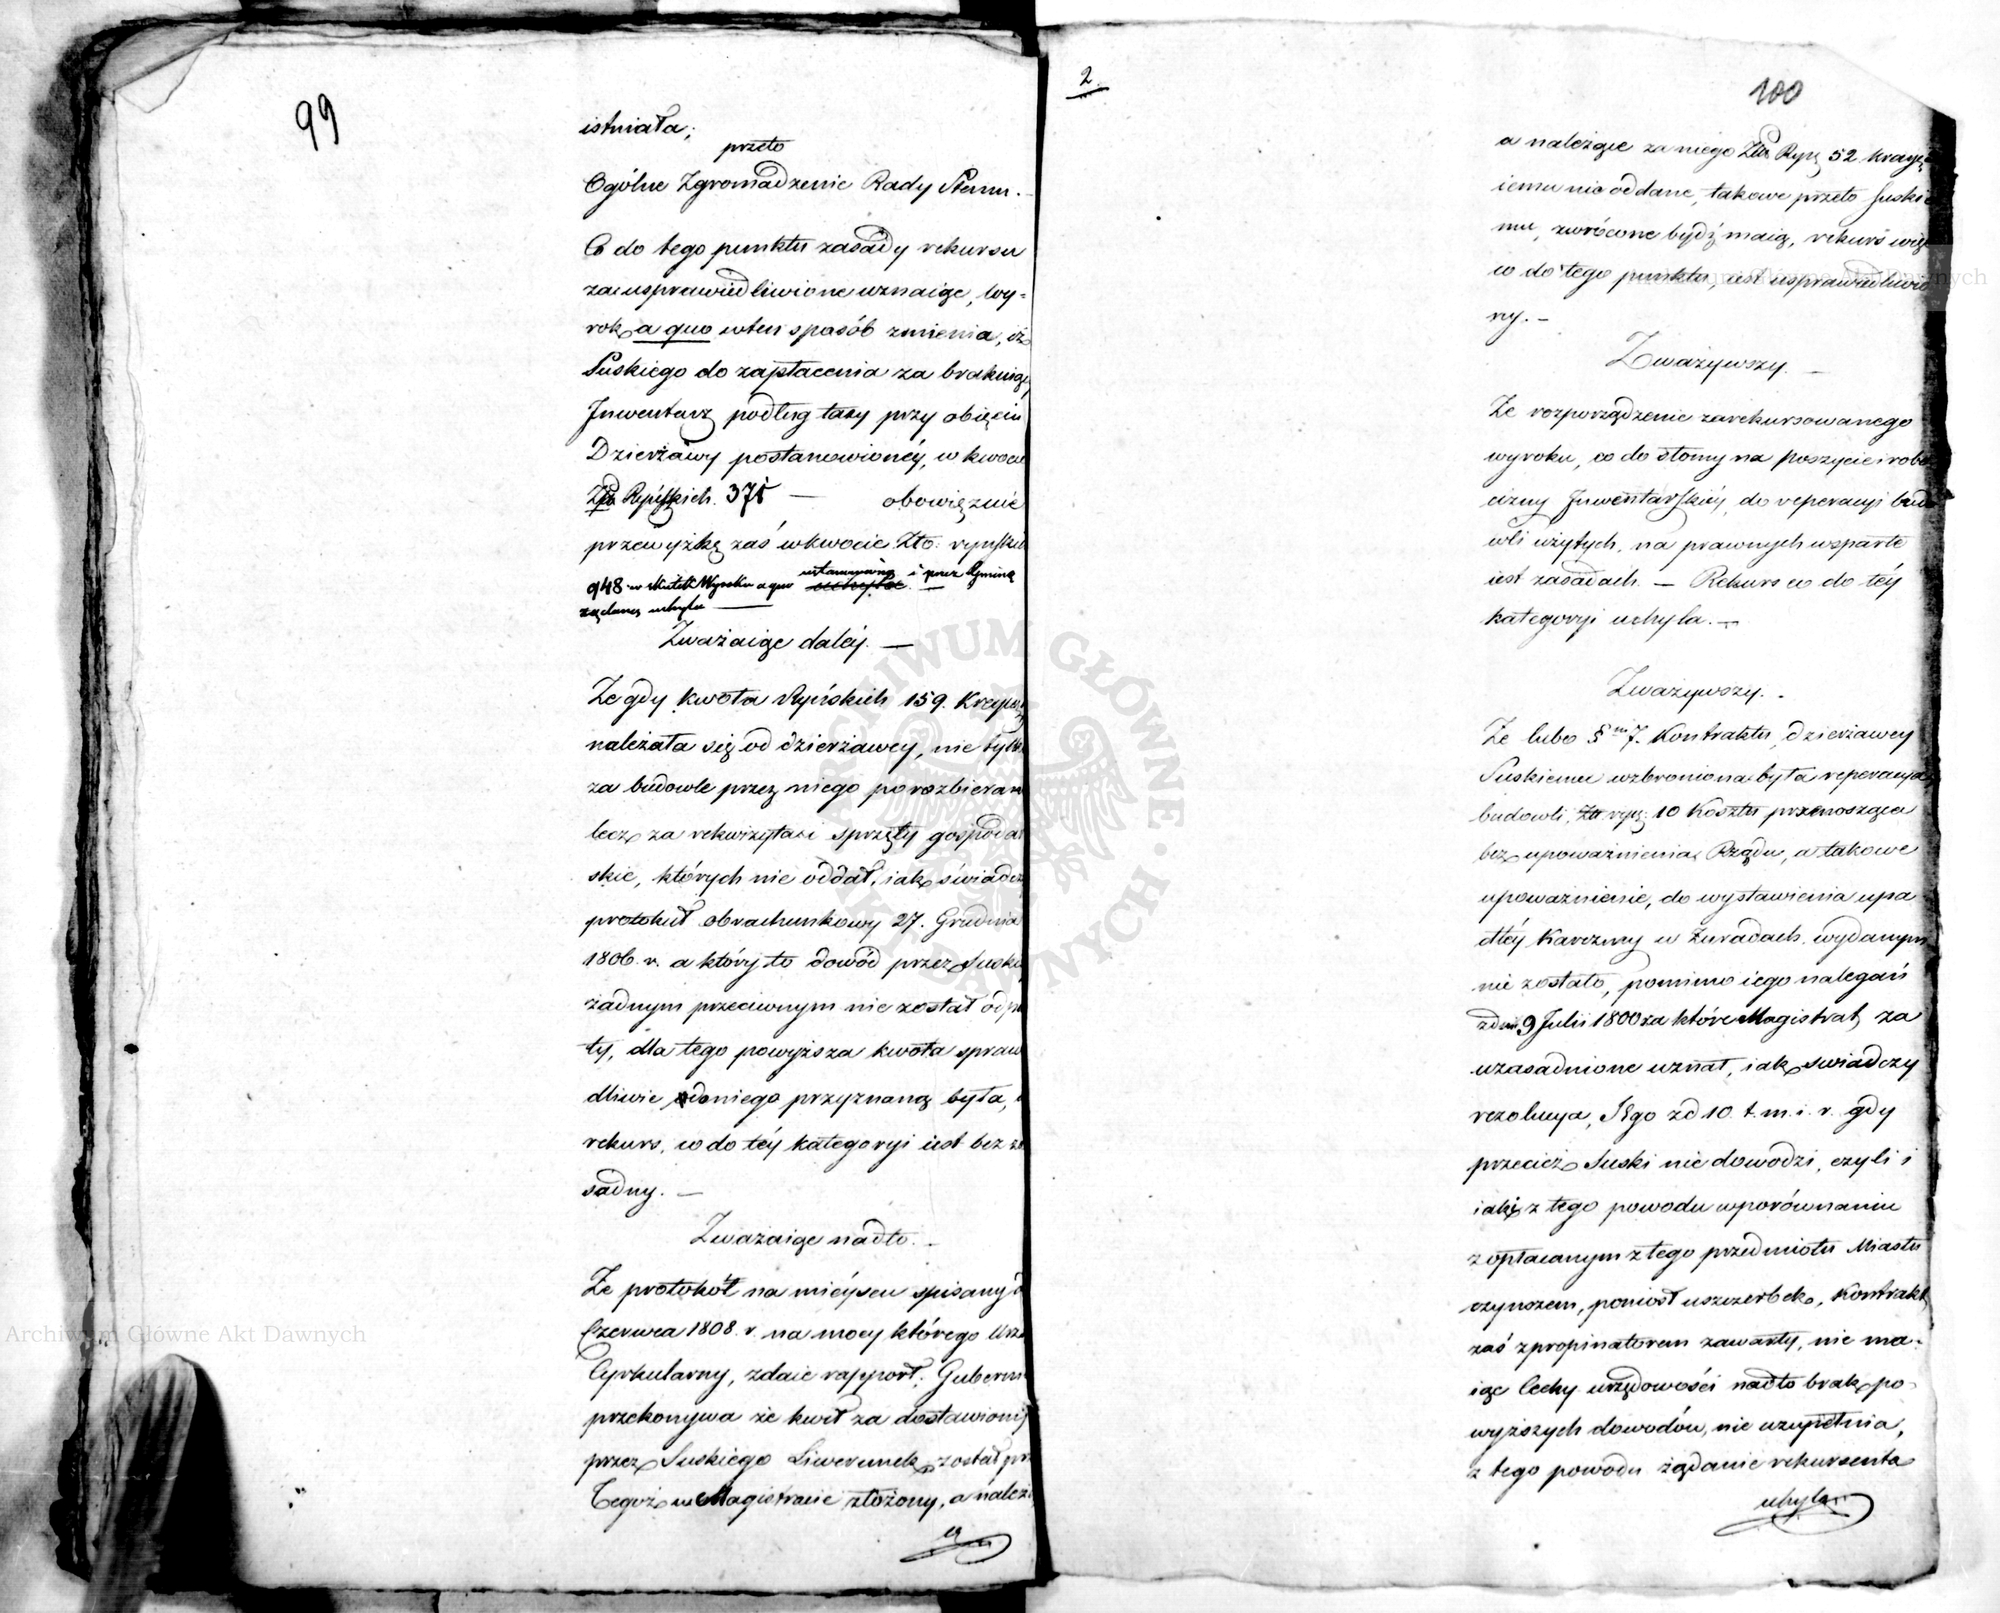 99
istniała;
przeto
Ogólne Zgromadzenie Rady Stanu.
Co do tego punktu zasady rekursu
za usprawiedliwione uznaiąc, Wy-
rok a quo wten sposób zmienia, iż
Suskiego do zapłacenia za brakuiący
Inwentarz podług taxy przy obięciu
Dzierżawy postanowionéy, w kwocie
Złp Ryńskich. 371 — obowięzuie
przewyżkę zaś w kwocie Zło: ryńskich
948 w Wyroku a quo ustanowioną i przez Gminę
żądaną uchyla —
Zważaiąc daléy. —
Że gdy kwota Ryńskich 159. Kray
należała się od dzierżawcy, nie tylko
za budowle przez niego porozbieran
lecz za rekwizyta i sprzęty gospodar
skie, których nie oddał, iak świadczy
protokuł obrachunkowy 27. Grudnia
1806. r. a który to dowód przez Susk
żadnym przeciwnym nie został odpar
ty, dla tego powyższa kwota spraw
dliwie odeniego przyznaną była,
rekurs, co do téy kategoryi iest bez za
sadny. —
Zważaiąc nadto. —
Że protokół na mieyscu spisany
Czerwca 1808. r. na mocy którego Urz
Cyrkularny, zdaie rapport, Gubern
przekonywa że kwit za dostawiony
przez Suskiego Liwerunek, został prz
Tegoż w Magistracie złożony, a należ
2
100
a należące za niego Złt Ryń 52 kray
iemu nie oddane, takowe przeto Suskie
mu, zwrócone bydź maią, rekurs więc
co do tego punktu, iest usprawiedliwio
ny. —
Zważywszy. —
Że rozporządzenie zarekursowanego
wyroku, co do słomy na poszycie i robo
cizny Inwentarskiéy, do reperacyi budo
wli użytych, na prawnych wsparte
iest zasadach. — Rekurs co do téy
kategoryi uchyla. —
Zważywszy. -
Że lubo § m 7. Kontraktu, dzierżawcy
Suskiemu wzbroniona była reperacya
budowli, Zł ryń: 10 Kosztu przenosząca
bez upoważnienia Rządu, a takowe
upoważnienie, do wystawienia upa
dłéy Karczmy w Żuradach. wydanym
nie zostało, pomimo iego nalegań
zdnia 9 Julii 1800 za które Magistrat, za
uzasadnione uznał, iak świadczy
rezolucya, Jego zd 10. t. m. i. r. gdy
przecież Suski nie dowodzi, czyli i
iaki z tego powodu w porównaniu
z opłacanym z tego przedmiotu Miastu
czynszem, poniosł uszczerbek, Kontrakt
zaś z propinatorem zawarty, nie ma-
iąc Cechy urzędowości nadto brak po-
wyższych dowodów, nie uzupełnia,
z tego powodu żądanie rekursenta
uchyla
ARCHIWUM GŁÓWNE AKT DAWNYCH
Archiwum Główne Akt Dawnych
Archiwum Główne Akt Dawnych